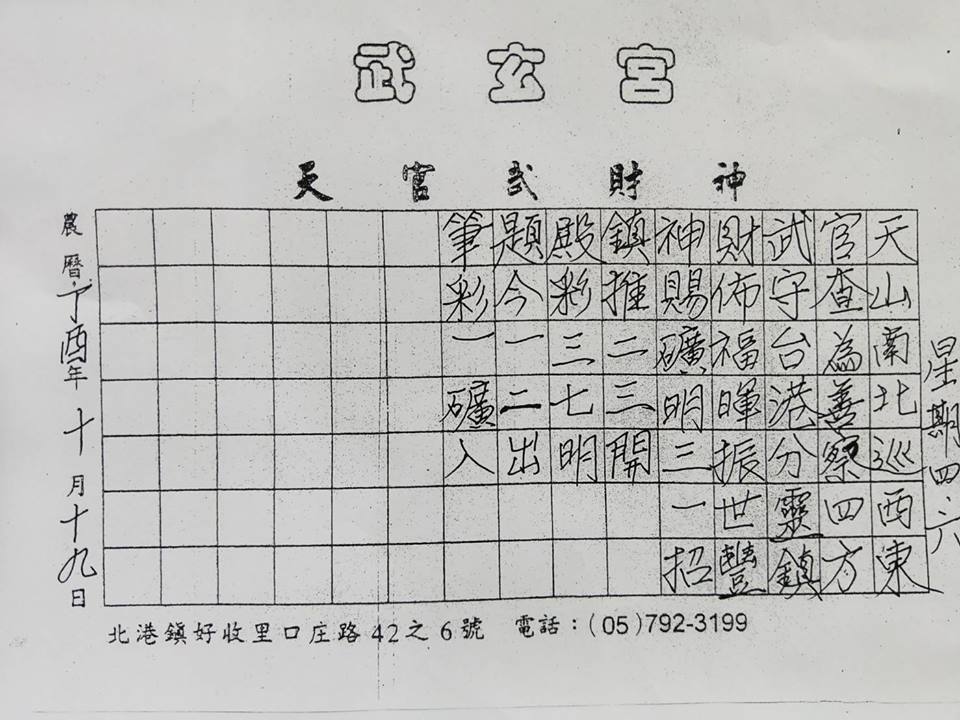 武玄宮
天官武財神
天山南北巡西東
官查為善察四方
武守台港分靈鎮
財佈福暉振世豐
神賜礦明三一招
鎮推二三開
殿彩三七明
題今一二出
筆彩一礦入
星期四、六
農曆丁酉年十月十九日
北港鎮好收里口庄路42之6號 電話:(05)792-3199